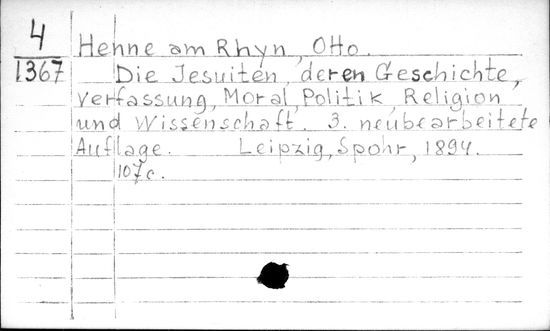 4
1367
Henne am Rhyn, Otto.
Die Jesuiten, deren Geschichte,
Verfassung, Moral, Politik, Religion
und Wissenschaft. 3. neubearbeitete
Auflage. Leipzig, Spohr, 1894.
107c.